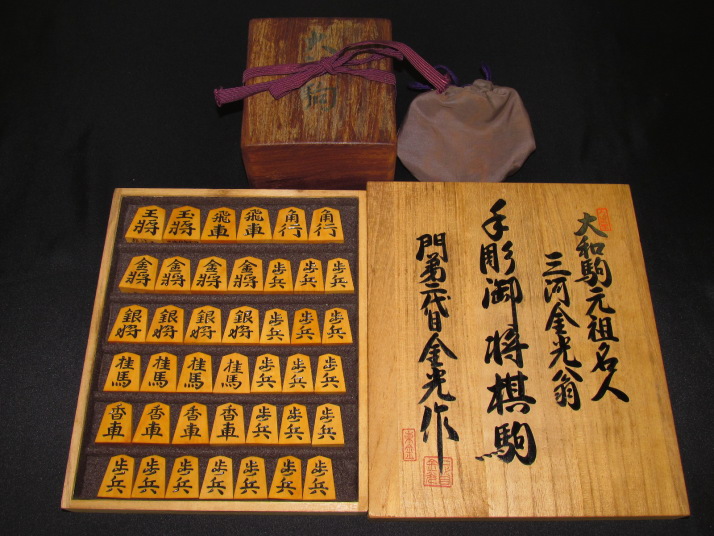 王将 玉将 飛車 飛車 角行 角行
金将 金将 金将 金将 歩兵 歩兵 歩兵
銀将 銀将 銀将 銀将 歩兵 歩兵 歩兵
桂馬 桂馬 桂馬 桂馬 歩兵 歩兵 歩兵
香車 香車 香車 香車 歩兵 歩兵 歩兵
歩兵 歩兵 歩兵 歩兵 歩兵 歩兵 歩兵
大和駒元祖名人
三河金光翁
手彫御将棋駒
門弟二代目金光作